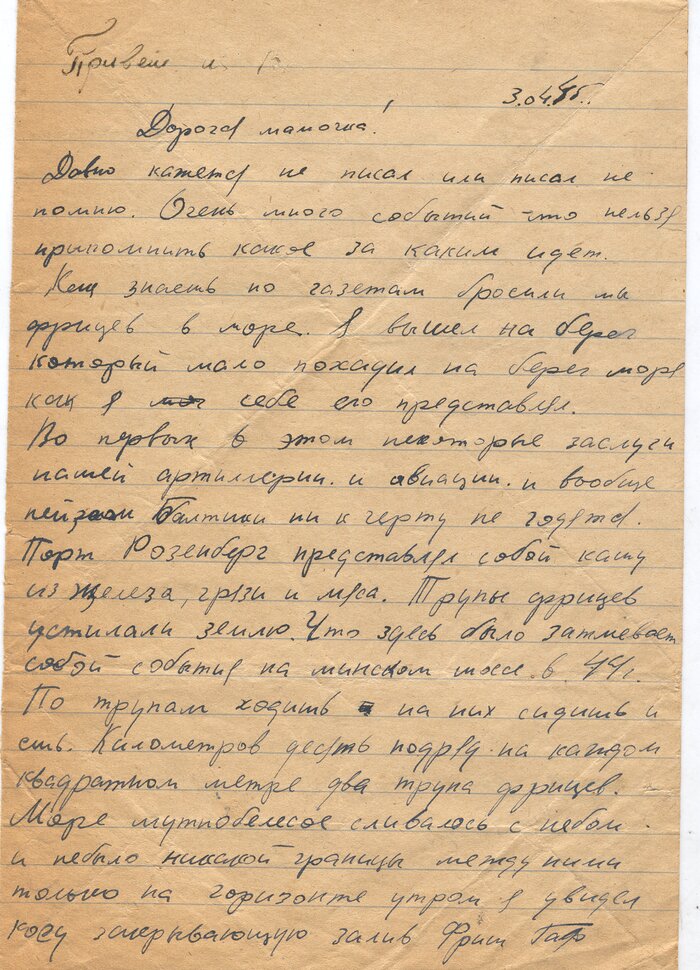 Привет из
3.04.45г.
Дорогая мамочка!
Давно кажется не писал или писал не
помню. Очень много событий что нельзя
припомнить какое за каким идет.
Как знаешь по газетам бросили мы
фрицев в море. Я вышел на берег
который мало походил на берег моря
как я себе его представлял.
Во первых в этом некоторые заслуги
нашей артиллерии и авиации и вообще
пейзаж Балтики ни к черту не годется.
Порт Розенберг представлял собой кашу
из железа, грязи и мяса. Трупы фрицев
устилали землю. Что здесь было затмевает
собой события на минском шоссе в 44г.
По трупам ходишь на них сидишь и
ешь. Километров десять подряд на каждом
квадратном метре два трупа фрицев.
Море мутнобелесое сливалось с небом
и небыло никакой границы между ними
только на горизонте утром я увидел
косу закрывающую залив Фриш Гаф